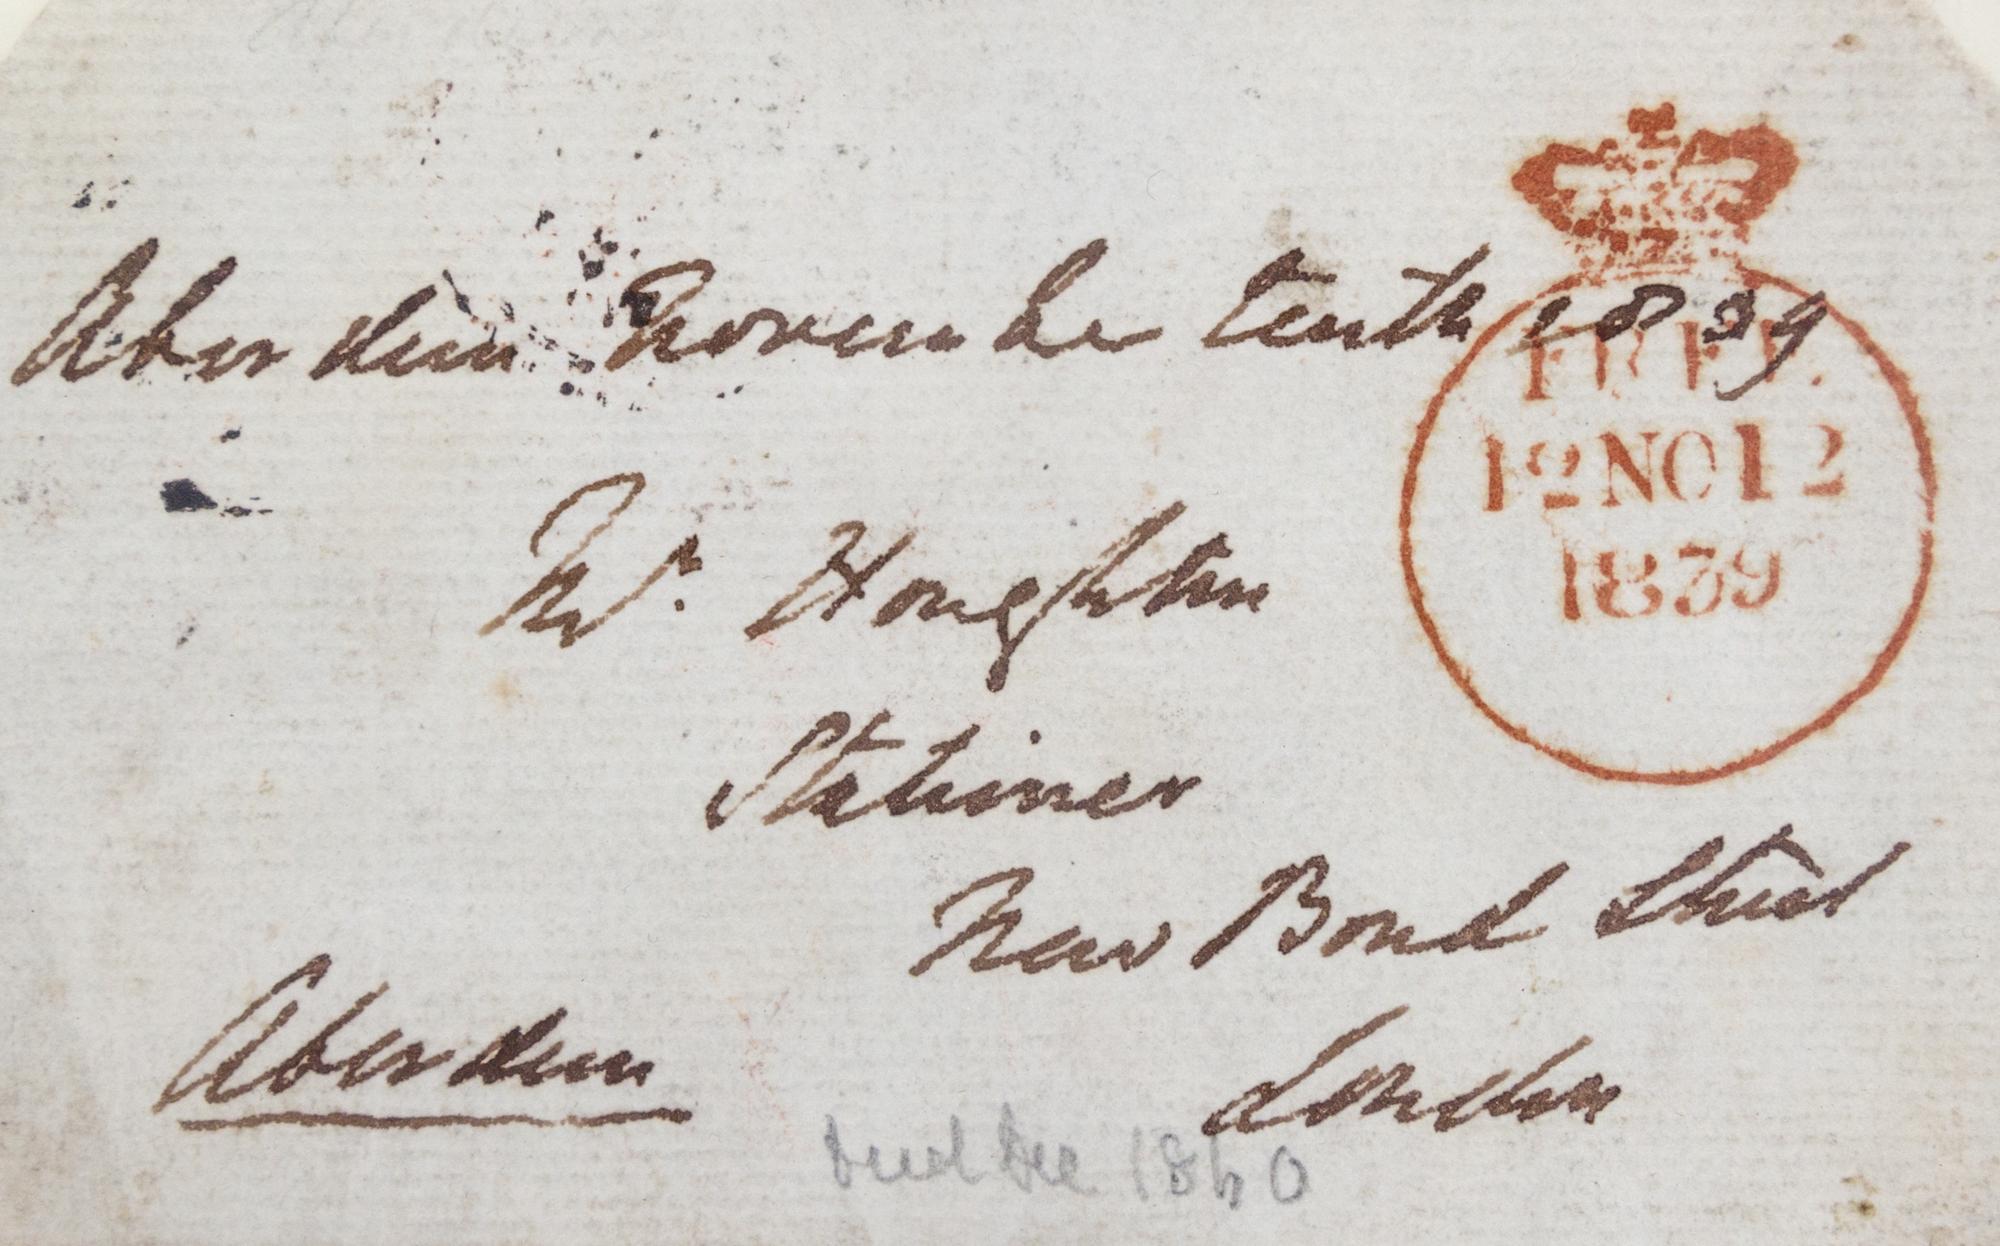 Aberdeen November tenth 1839
FREE
12 NO 12
1839
Mr. Houghton
Stationer
New Bond Street
London
Aberdeen
died Dec 1860